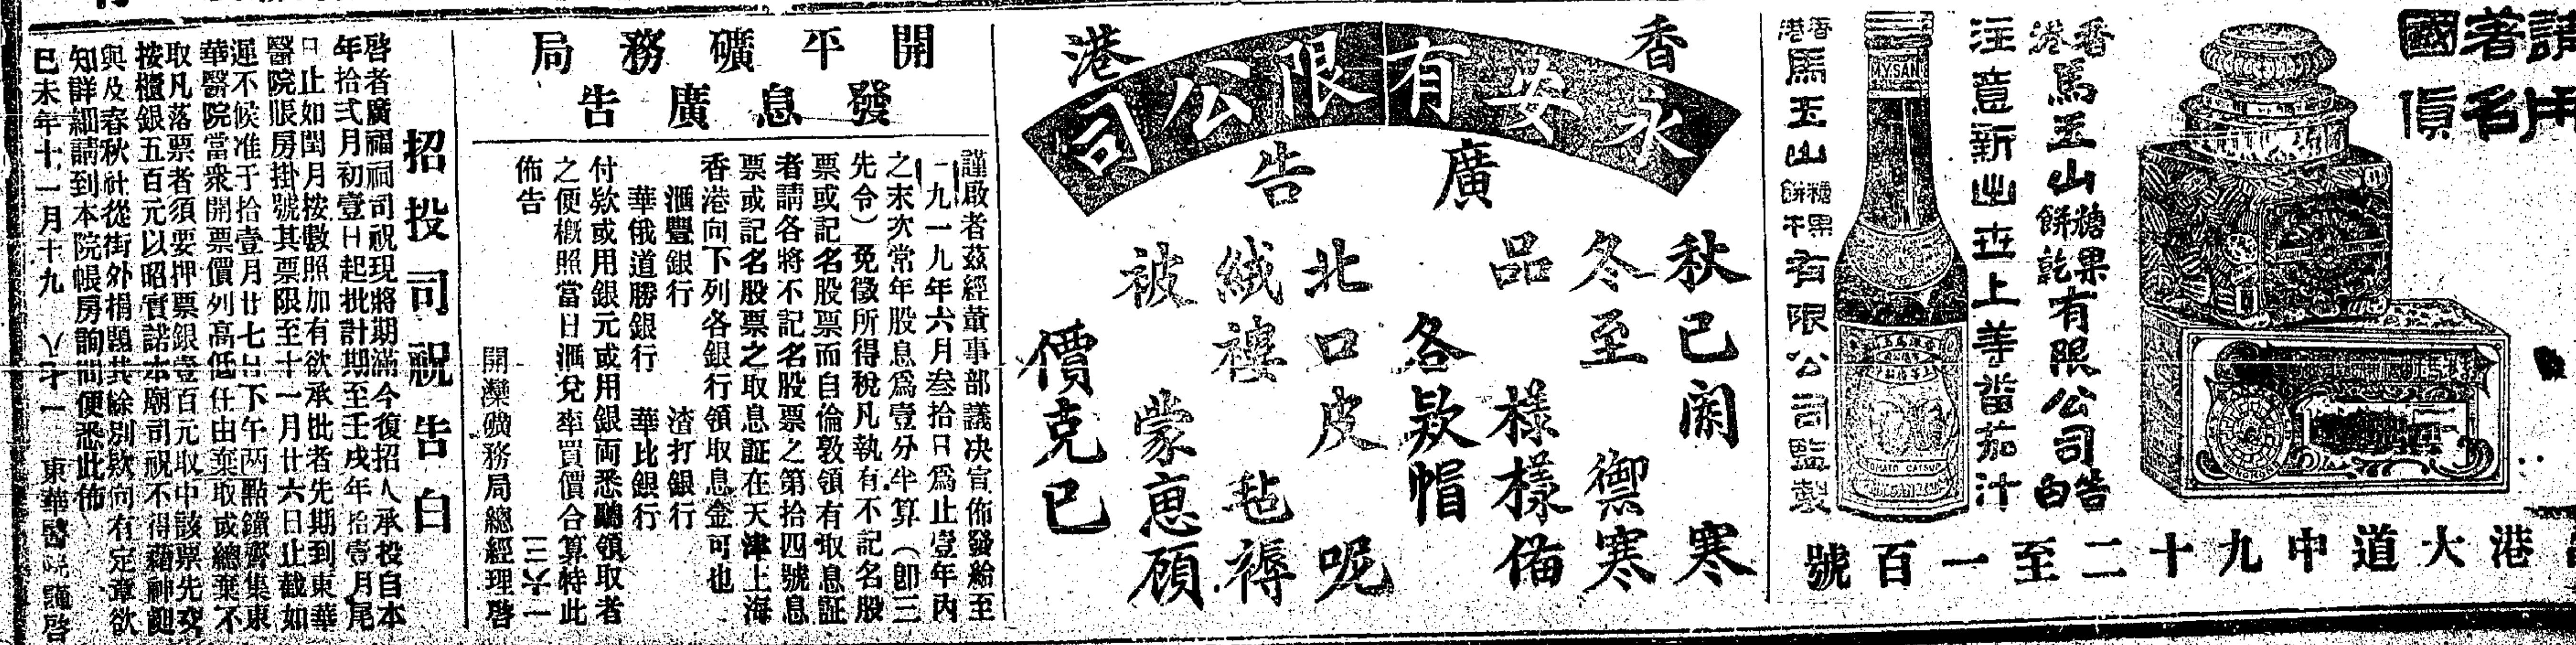 請用
著名
國貨
香港馬玉山糖果餅乾有限公司告白
注意新出世上等番茄汁
香港馬玉山糖果餅干有限公司監製
MY.SAN
TOMATO CATSUP
港大道中九十二至一百號
香港
永安有限公司
廣告
秋已闌 寒
冬至 禦寒
品 樣樣備
各款帽
北口皮 呢
絨褸 毡褥
被 蒙惠顧
價克已
開平礦務局
發息廣告
謹啟者茲經董事部議決宣佈發給至
一九一九年六月叁拾日爲止壹年內
之末次常年股息爲壹分半算（卽三
先令）免徵所得稅凡執有不記名股
票或記名股票而自倫敦領有取息証
者請各將不記名股票之第拾四號息
票或記名股票之取息証在天津上海
香港向下列各銀行領取息金可也
滙豐銀行 渣打銀行
華俄道勝銀行 華比銀行
付欵或用銀元或用銀両悉聽領取者
之便槪照當日滙兌率買價合算特此
佈告
開灤礦務局總經理啓
一三六一
招投司祝告白
啓者廣福祠司祝現將期滿今復招人承投自本
年拾弍月初壹日起批計期至壬戌年拾壹月尾
日止如閏月按數照加有欲承批者先期到東華
醫院賬房掛號其票限至十一月廿六日止截如
遲不候准于拾壹月廿七日下午両點鐘齊集東
華醫院當衆開票價列高低任由棄取或總棄不
取凡落票者須要押票銀壹百元取中該票先交
按櫃銀五百元以昭實諾本廟司祝不得藉神廻
與及春秋社從街外捐題其餘別欵向有定章欲
知詳細請到本院帳房詢問便悉此佈
已未年十一月十九 東華醫院謹啓